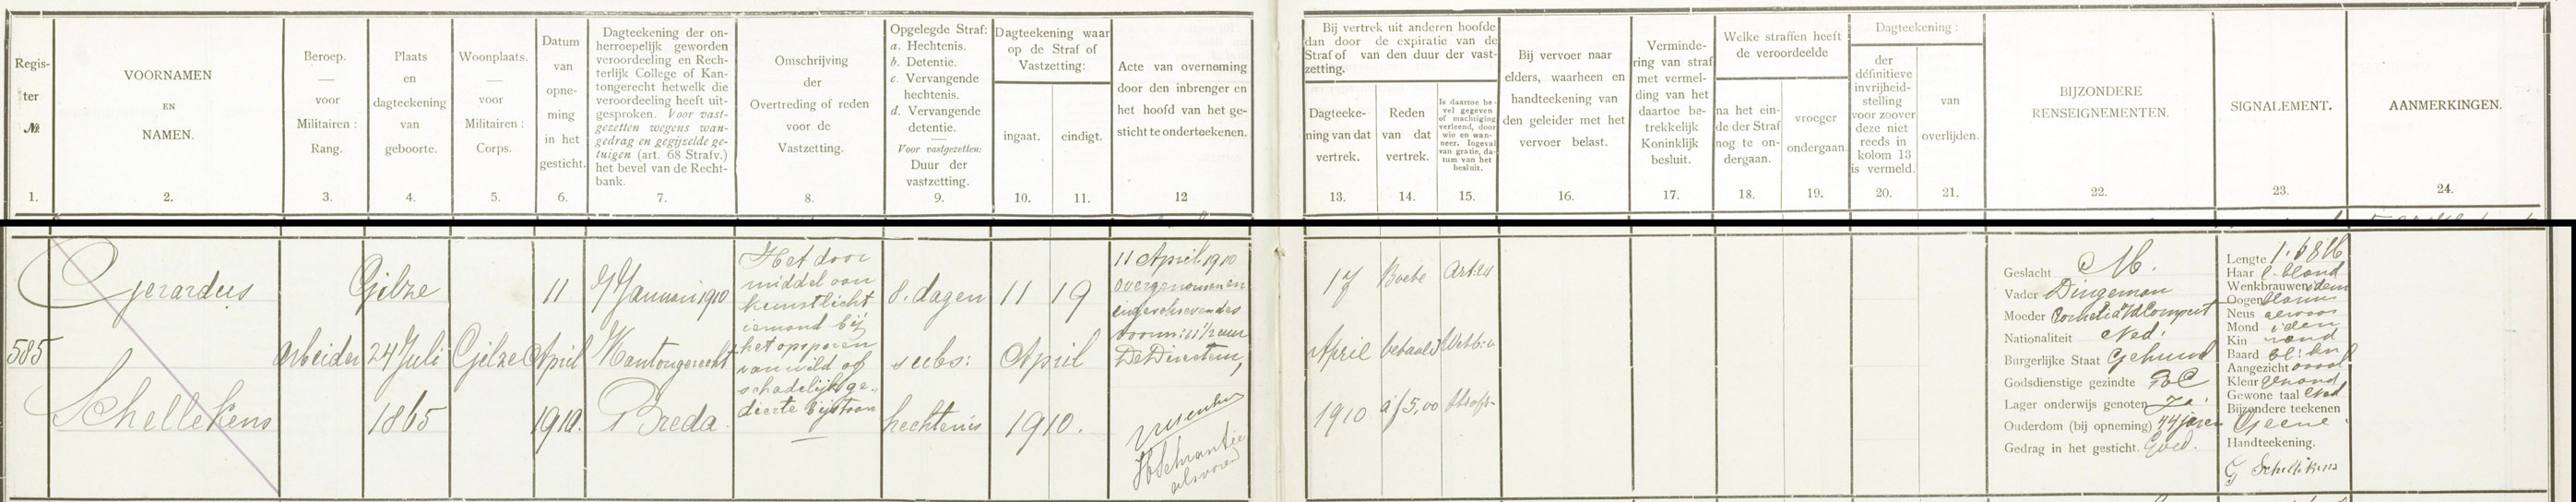 Regis-
ter
№
1.
VOORNAMEN
EN
NAMEN.
2.
Beroep.
—
voor
Militairen:
Rang.
3.
Plaats
en
dagteekening
van
geboorte.
4.
Woonplaats.
—
voor
Militairen:
Corps.
5.
Datum
van
opne-
ming
in het
gesticht.
6.
Dagteekening der on-
herroepelijk geworden
veroordeeling en Rech-
terlijk College of Kan-
tongerecht hetwelk die
veroordeeling heeft uit-
gesproken. Voor vast-
gezetten wegens wan-
gedrag en gegijzelde ge-
tuigen (art. 68 Strafv.)
het bevel van de Recht-
bank.
7.
Omschrijving
der
Overtreding of reden
voor de
Vastzetting.
8.
Opgelegde Straf:
a. Hechtenis.
b. Detentie.
c. Vervangende
hechtenis.
d. Vervangende
detentie.
Voor vastgezetten:
Duur der
vastzetting.
9.
Dagteekening waar
op de Straf of
Vastzetting:
ingaat.
10.
eindigt.
11.
Acte van overneming
door den inbrenger en
het hoofd van het ge-
sticht te ondertoekenen.
12
Bij vertrek uit anderen hoofde
dan door de expiratie van de
Straf of van den duur der vast-
zetting.
Dagteeke-
ning van dat
vertrek.
13.
Reden
van dat
vertrek.
14.
Is daartoe be-
vel gegeven
of machtiging
verleend, door
wie en wan-
neer. Ingeval
van gratie, da-
tum van het
besluit.
15.
Bij vervoer naar
elders, waarheen en
handteekening van
den geleider met het
vervoer belast.
16.
Verminde-
ring van straf
met vermel-
ding van het
daartoe be-
trekkelijk
Koninklijk
besluit.
17.
Welke straffen heeft
de veroordeelde
na het ein-
de der Straf
nog te on-
dergaan.
18.
vroeger
ondergaan.
19.
Dagteekening:
der
définitieve
invrijheid-
stelling
voor zoover
deze niet
reeds in
kolom 13
is vermeld.
20.
van
overlijden.
21.
BIJZONDERE
RENSEIGNEMENTEN.
22.
SIGNALEMENT.
23.
AANMERKINGEN.
24.
585
Gerardus
Schellekens
Arbeider
Gilze
24 Juli
1865
Gilze
11
April
1910.
7 Januari 1910
Kantongerecht
Breda
Het door
middel van
kunstlicht
iemand bij
het opsporen
van wild of
schadelijk ge-
dierte bijstaan
8. dagen
subs:
hechtenis
11 19
April
1910.
11 April 1910
overgenomen en
ingeschreven des
voorm: 11 1/2 uur
17
April
1910
Boete
betaald
à f 5,00
Art: 24
Geslacht M.
Vader Dingeman
Moeder Cornelia
Nationaliteit Ned.
Burgerlijke Staat Gehuwd
Godsdienstige gezindte RC
Lager onderwijs genoten Ja
Ouderdom (bij opneming) 44 jaren
Gedrag in het gesticht. Goed.
Lengte
Haar l. blond
Wenkbrauwen idem
Oogen blauw
Neus gewoon
Mond idem
Kin rond
Baard
Aangezicht ovaal
Kleur gezond
Gewone taal Ned
Bijzondere teekenen
Geene
Handteekening.
G Schellekens